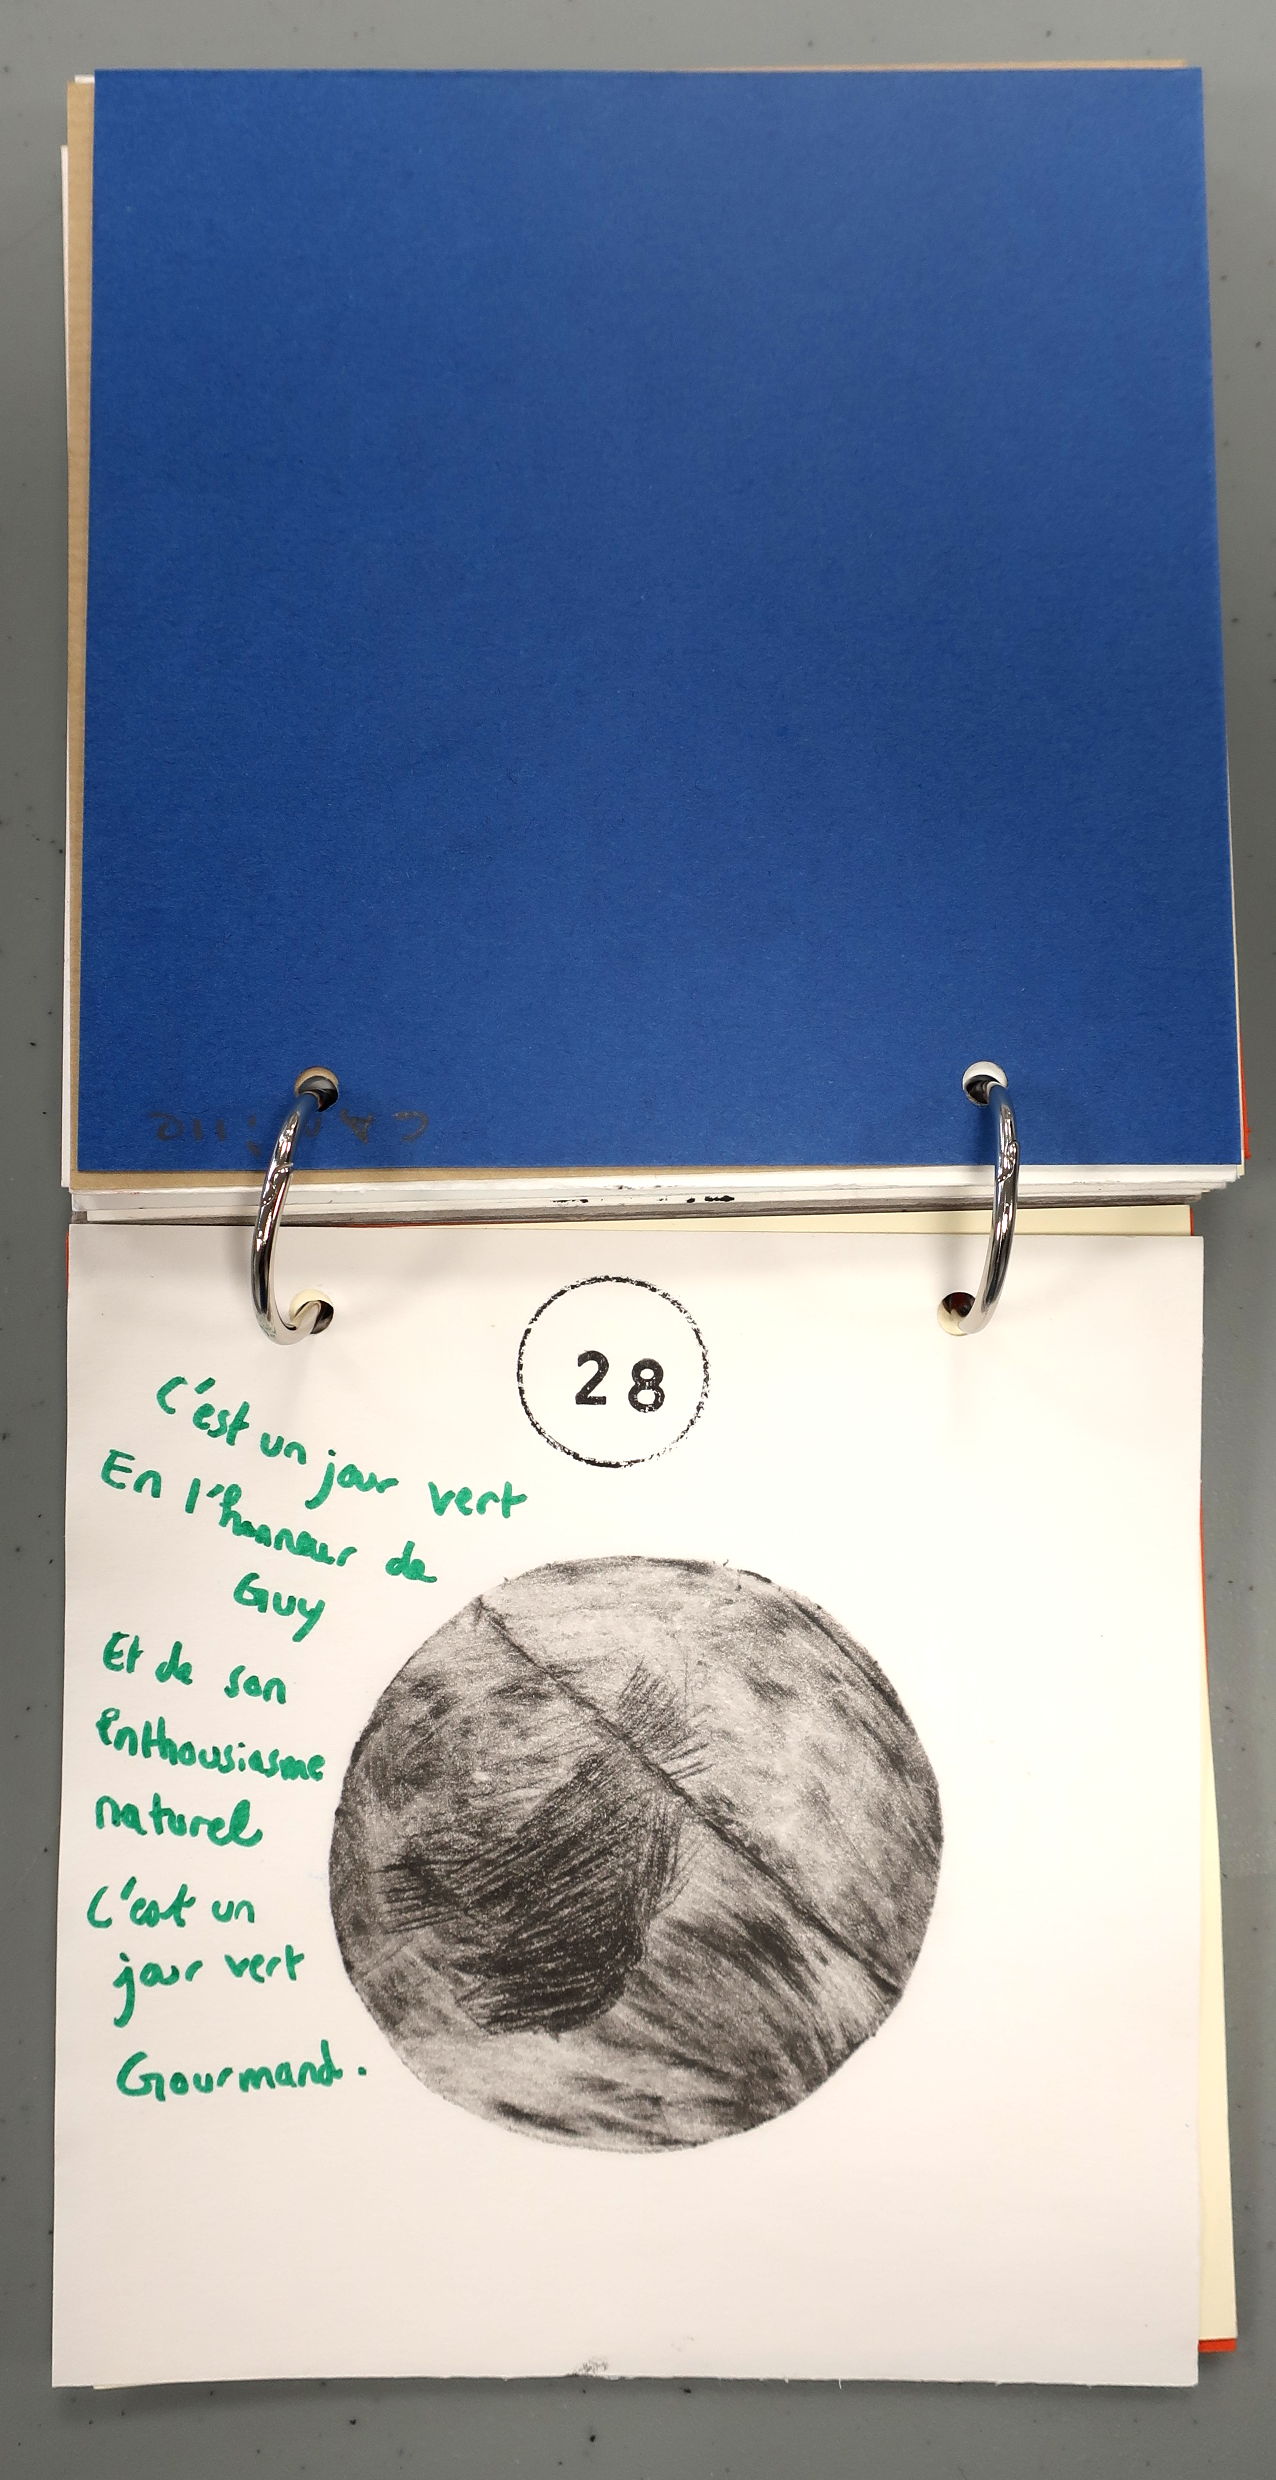 Camille
28
C'est un jour vert
En l'honneur de
Guy
Et de son
enthousiasme
naturel
C'est un
jour vert
Gourmand.